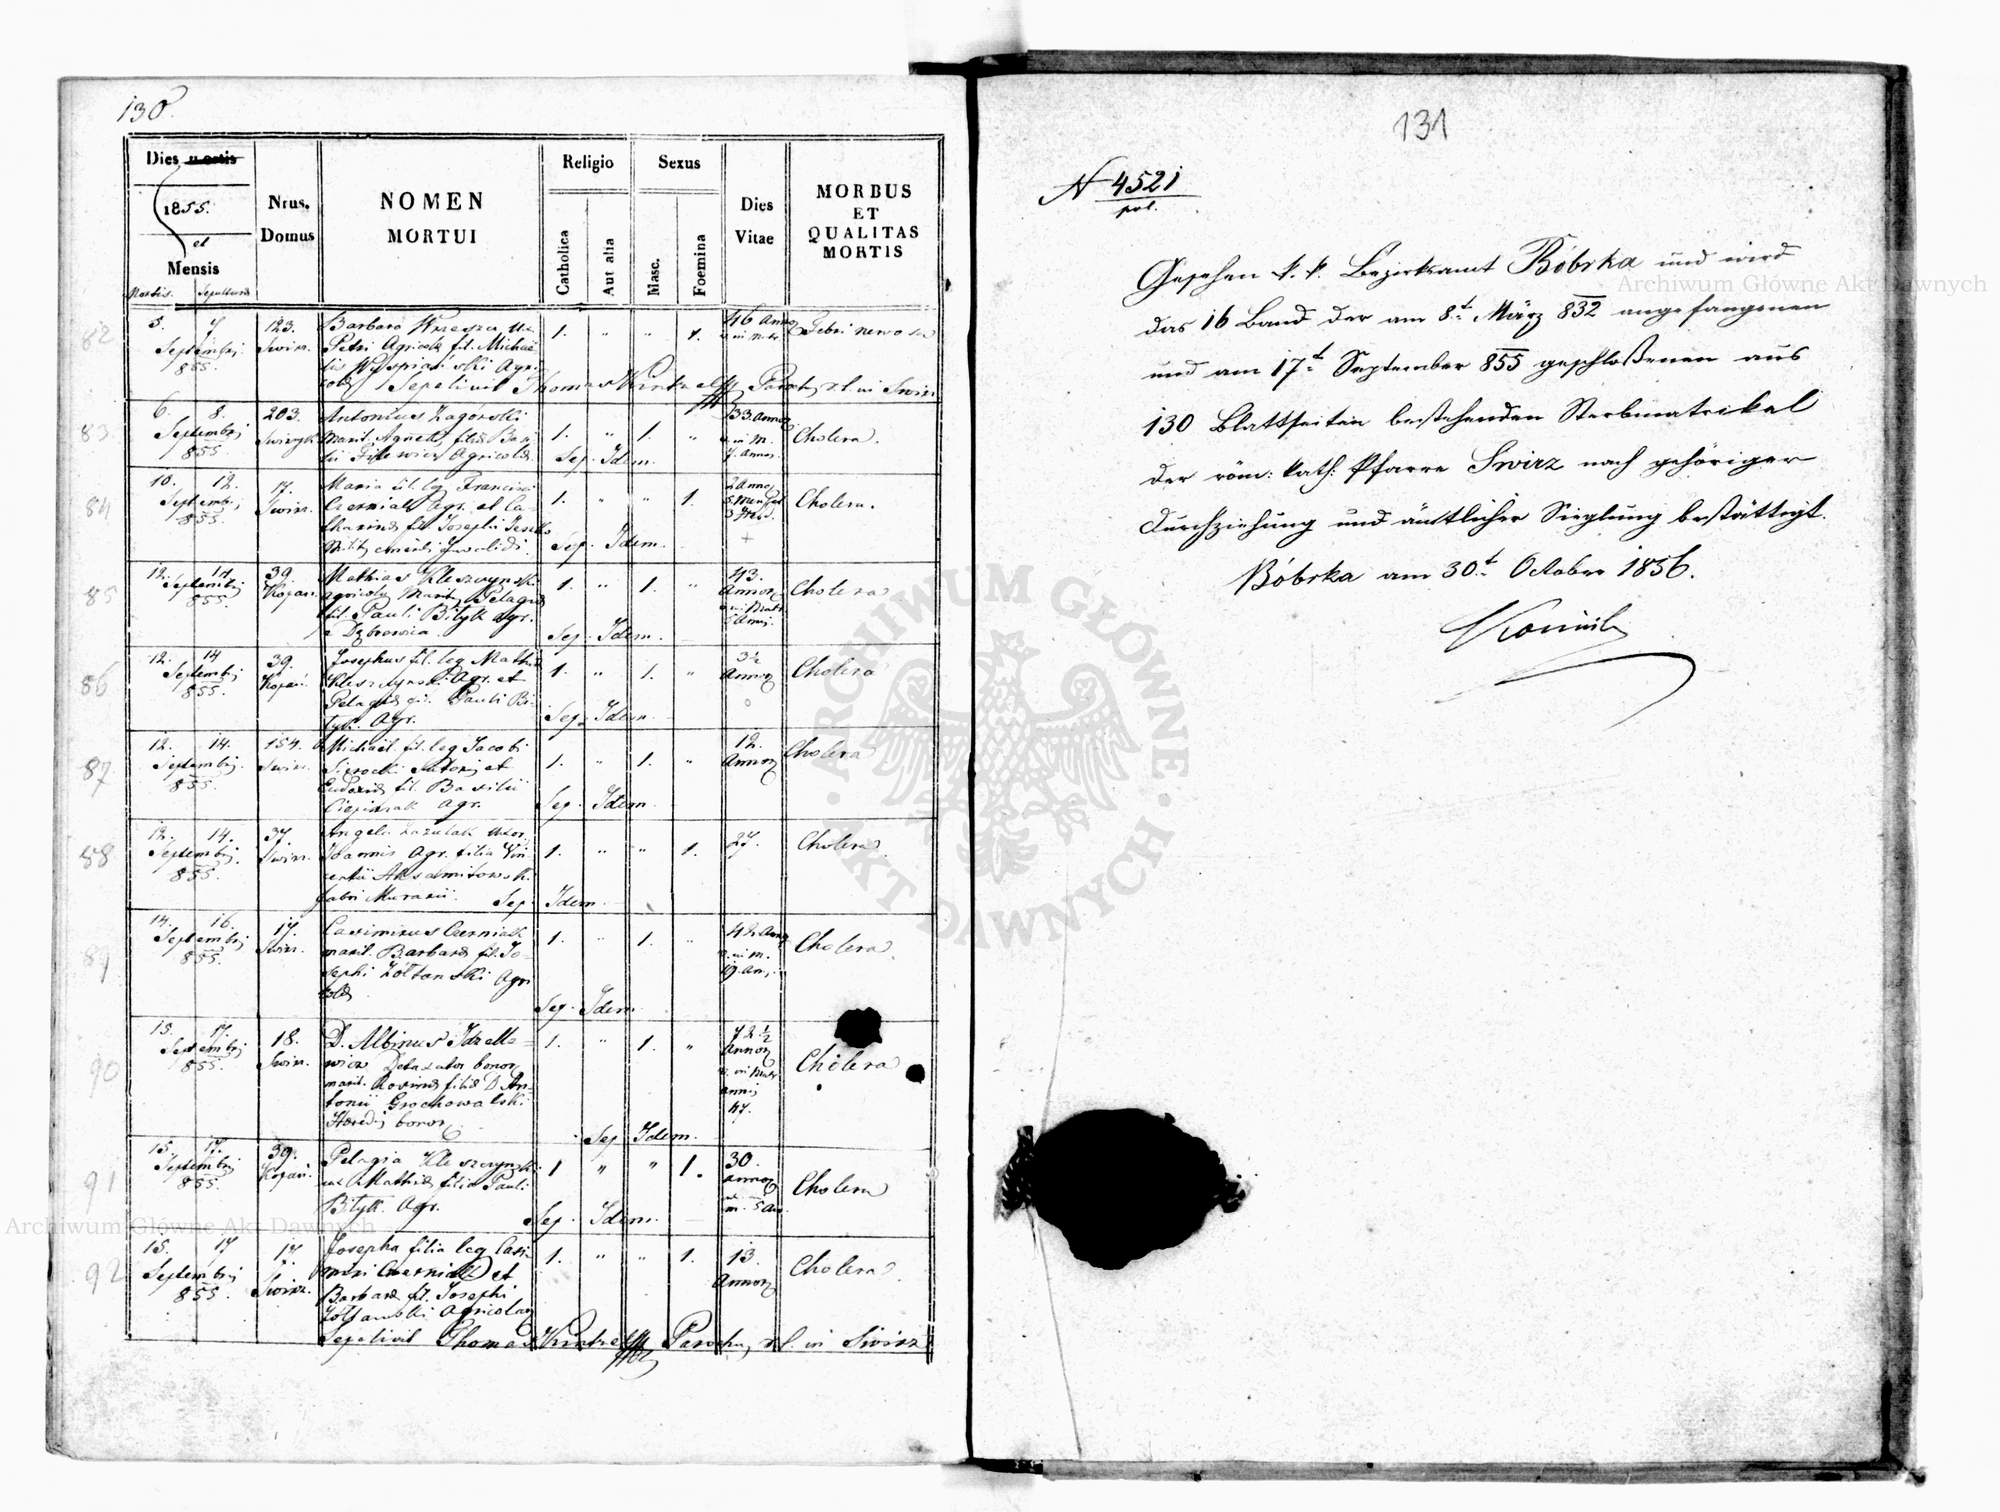 130.
Dies mortis
1855.
et
Mensis
Mortis. Sepulturae
Nrus.
Domus
NOMEN
MORTUI
Religio
Catholica
Aut alia
Sexus
Masc.
Foemina
Dies
Vitae
MORBUS
ET
QUALITAS
MORTIS
82
5. 7
Septembri
855.
123.
Swirz.
Barbara
Petri Agricolae fil. Michae-
lis Wyspiański Agri-
colae Sepelivit Thomas Parochus r. l. in Swirz
1. " " 1.
46 Annor
Febri nervosa
83
6. 8.
Septembri
855
203.
Antonius Zagórski
marit. Agnetis filiae Basi-
lii Agricolae
1. " 1. "
Sep. Idem.
33 Annor
7. Annos
Cholera.
84
10. 12.
Septembri
855.
17.
Swirz.
Maria fil. leg. Francisci
Czerniak Agr. et Ca-
tharinae fil. Josephi
1. " " 1.
Sep. Idem.
2 Annor
Cholera.
85
12. 14
Septembri
855.
39.
Kopań.
Mathias Kleszczynski
agricola Marit. Pelagiae
fil. Pauli Bityk Agr.
1. " 1. "
Sep. Idem.
43.
Annor
Cholera
86
12. 14
Septembri
855.
39.
Kopań.
Josephus fil. leg Mathiae
Kleszczynski Agr. et
Pelagiae fil. Pauli Bi-
tyk. Agr.
1. " 1. "
Sep. Idem.
3½
Annor
Cholera
87
12. 14.
Septembri.
855.
154.
Swirz.
Michael fil. leg Jacobi
Sierocki Sutoris et
Eudoxiae fil. Basilii
Agr.
1. " 1. "
Sep. Idem.
12.
Annor
Cholera
88
12. 14.
Septembri.
855.
37.
Swirz.
Angela Uxor
Joannis Agr. filia Vin-
centii Aksamitowski
fabri Murarii. Sep. Idem.
1. " " 1.
27.
Cholera.
89
14. 16.
Septembri
855.
17.
Swirz.
Casimirus Czerniak
marit. Barbarae fil. Jo-
sephi Żółtański Agri-
colae
1. " 1. "
Sep. Idem.
42 Annor
19. An.
Cholera.
90
15. 17.
Septembri
855.
18.
Swirz.
D. Albinus
Detaxator bonor.
marit. Rosinae filiae D. An-
tonii Grochowalski
Haeredis bonor.
1. " 1. "
Sep. Idem.
72½
Annor
47.
Cholera
91
15. 17.
Septembri
855.
39.
Kopań.
Pelagia Kleszczynska
ux. Mathiae filia Pauli
Bityk. Agr.
1 " " 1.
Sep. Idem.
30.
annor
Cholera
92
15. 17
Septembri
855.
17.
Swirz.
Josepha filia leg Casi-
miri Czerniak et
Barbarae fil. Josephi
Żółtański Agricolar
1. " " 1.
13.
Annor
Cholera.
Sepelivit Thomas Parochus r. l. in Swirz
131
N 4521
pol.
Gesehen k. k. Bezirksamt Bóbrka und wird
das 16 Band der am 8t. März 832 angefangenen
und am 17t. September 855 geschloßenen aus
130 Blattseiten bestehenden Sterbmatrikel
der röm: kath: Pfarre Swirz nach gehöriger
Durchziehung und ämtlicher Sieglung bestättigt.
Bóbrka am 30t. October 1856.
Archiwum Główne Akt Dawnych
ARCHIWUM GŁÓWNE AKT DAWNYCH
Archiwum Główne Akt Dawnych